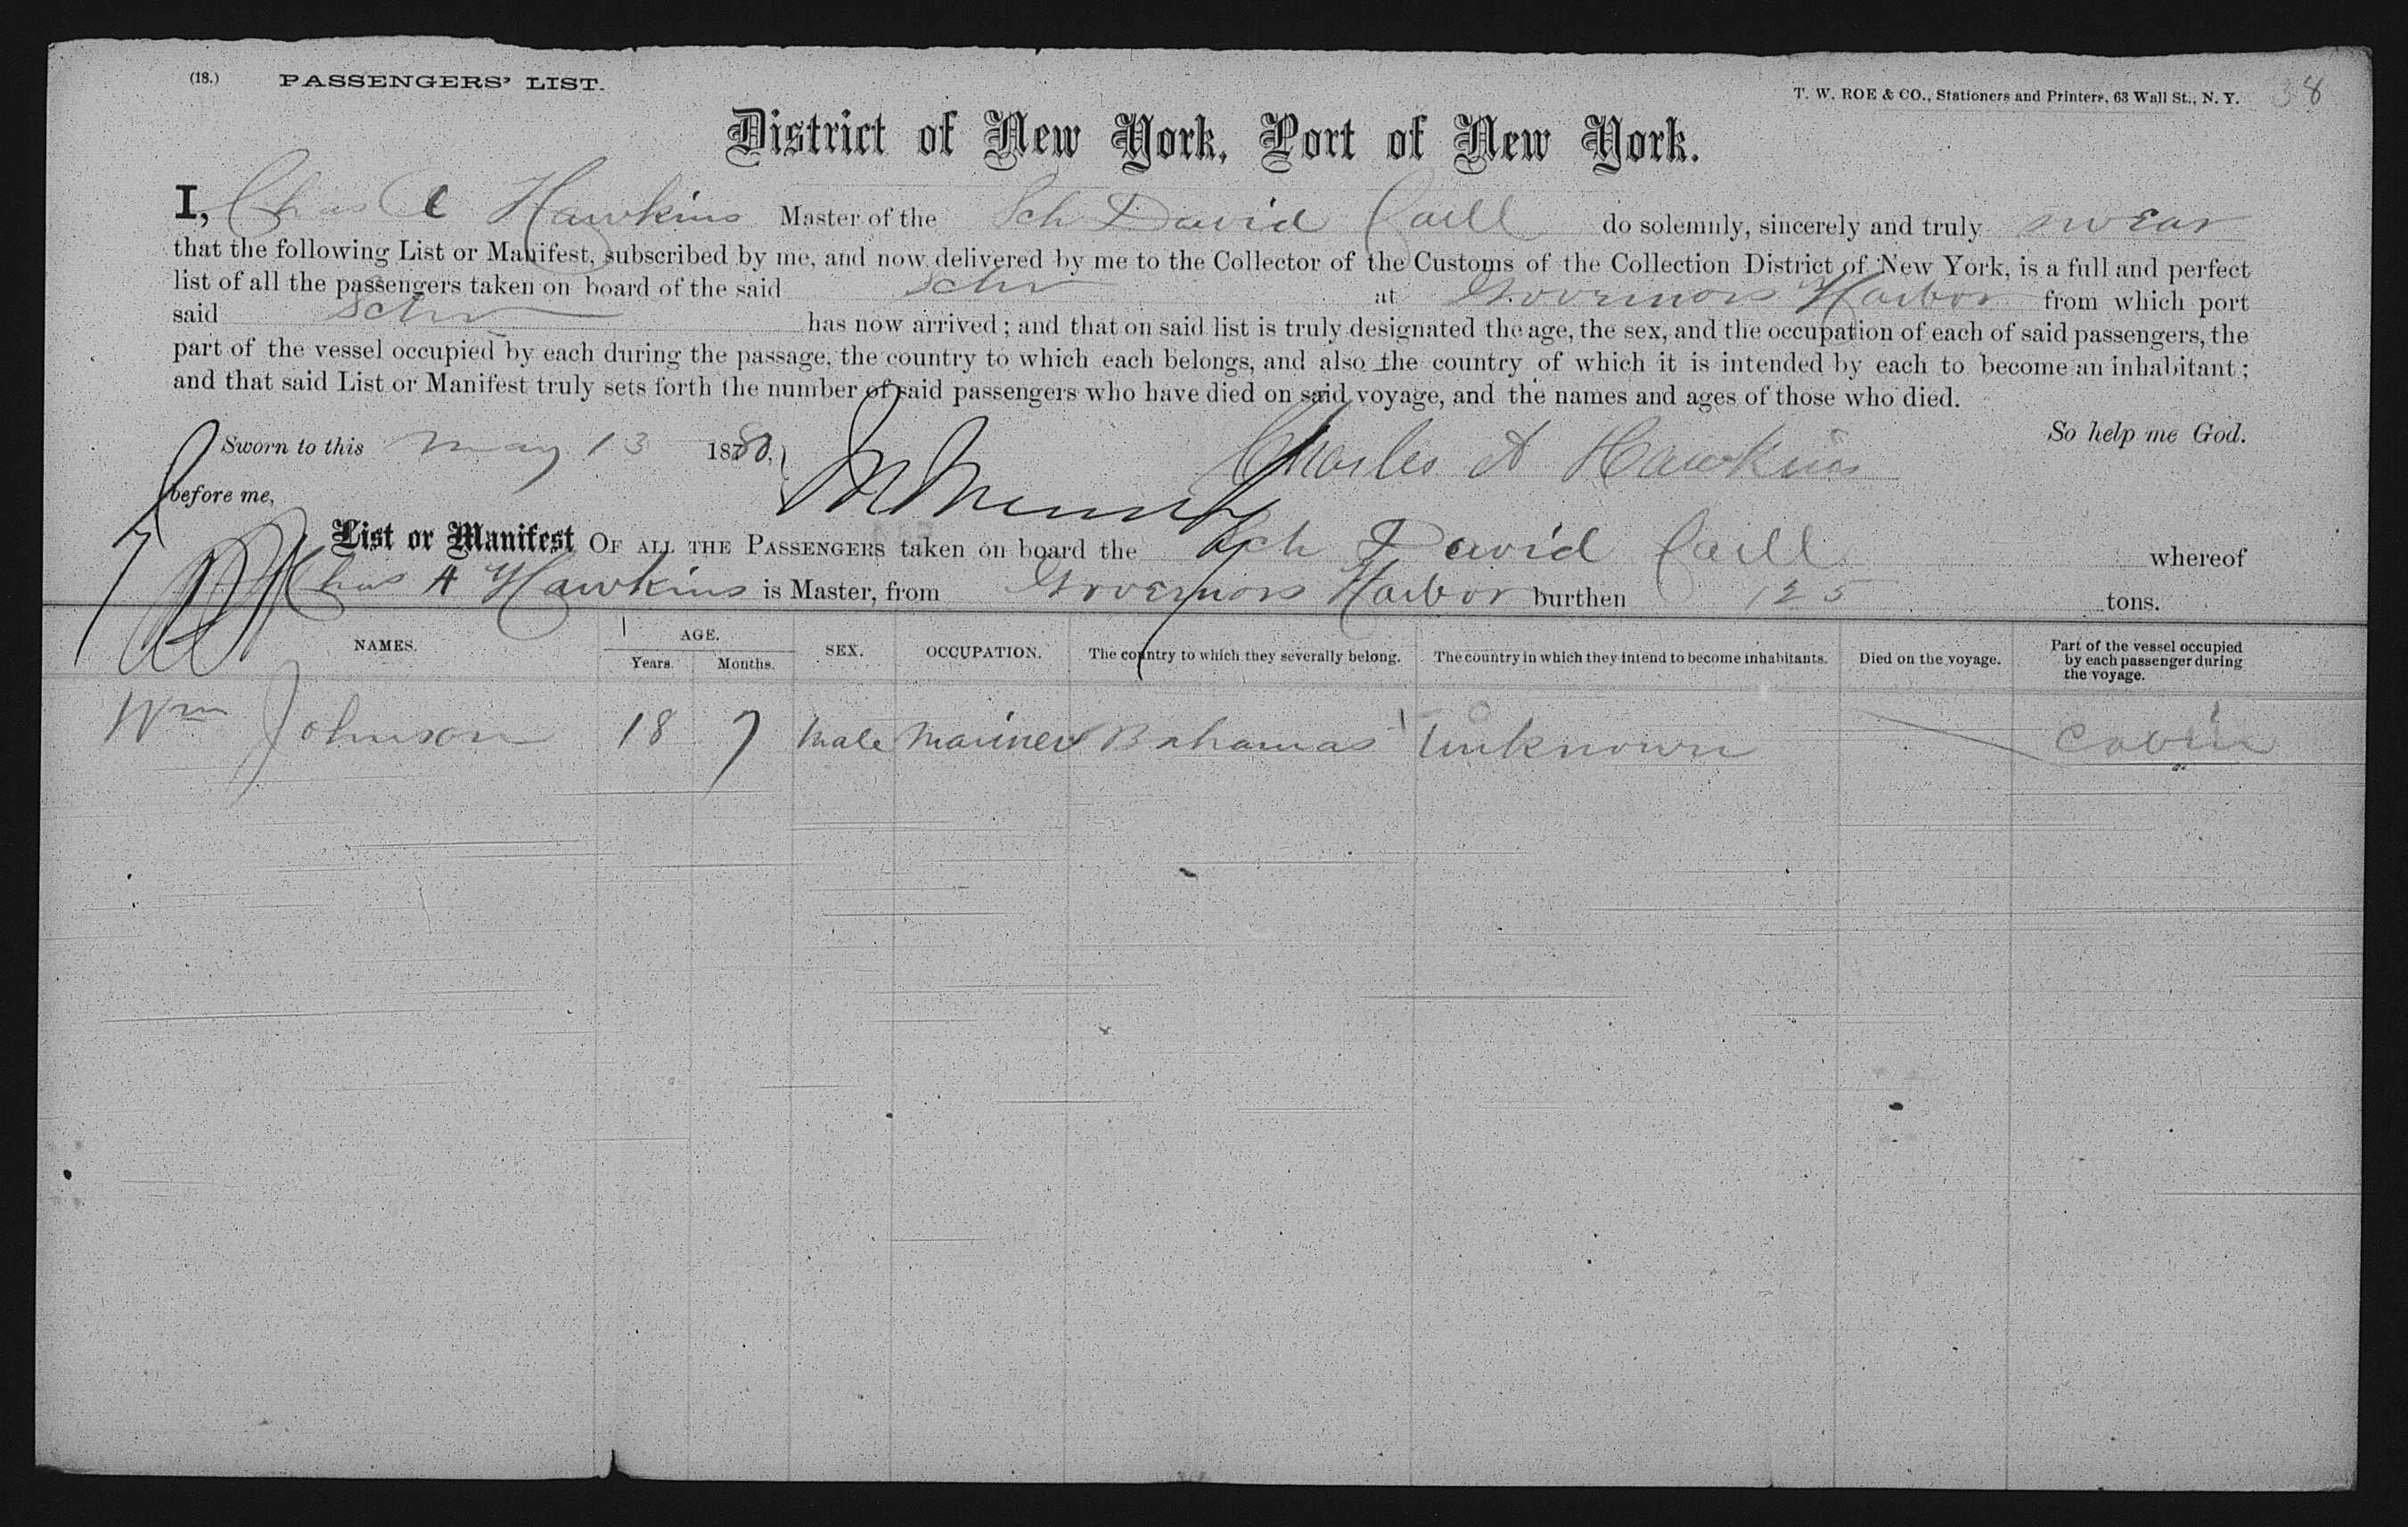 (18.) PASSENGERS' LIST. T. W. ROE & CO., Stationers and Printers, 63 Wall St., N. Y. 38
District of New York, Port of New York.
I, Chas A Hawkins Master of the Sch David Carll do solemnly, sincerely and truly swear
that the following List or Manifest, subscribed by me, and now delivered by me to the Collector of the Customs of the Collection District of New York, is a full and perfect
list of all the passengers taken on board of the said Schr at Governors Harbor from which port
said Schr has now arrived; and that on said list is truly designated the age, the sex, and the occupation of each of said passengers, the
part of the vessel occupied by each during the passage, the country to which each belongs, and also the country of which it is intended by each to become an inhabitant;
and that said List or Manifest truly sets forth the number of said passengers who have died on said voyage, and the names and ages of those who died.
So help me God.
Sworn to this May 13 1880, Charles A Hawkins
before me,
List or Manifest OF ALL THE PASSENGERS taken on board the Sch David Carll whereof
Chas A Hawkins is Master, from Governors Harbor burthen 125 tons.
NAMES. AGE. Years. Months. SEX. OCCUPATION. The country to which they severally belong. The country in which they intend to become inhabitants. Died on the voyage. Part of the vessel occupied by each passenger during the voyage.
Wm Johnson 18 7 Male Mariner Bahamas Unknown Cabin